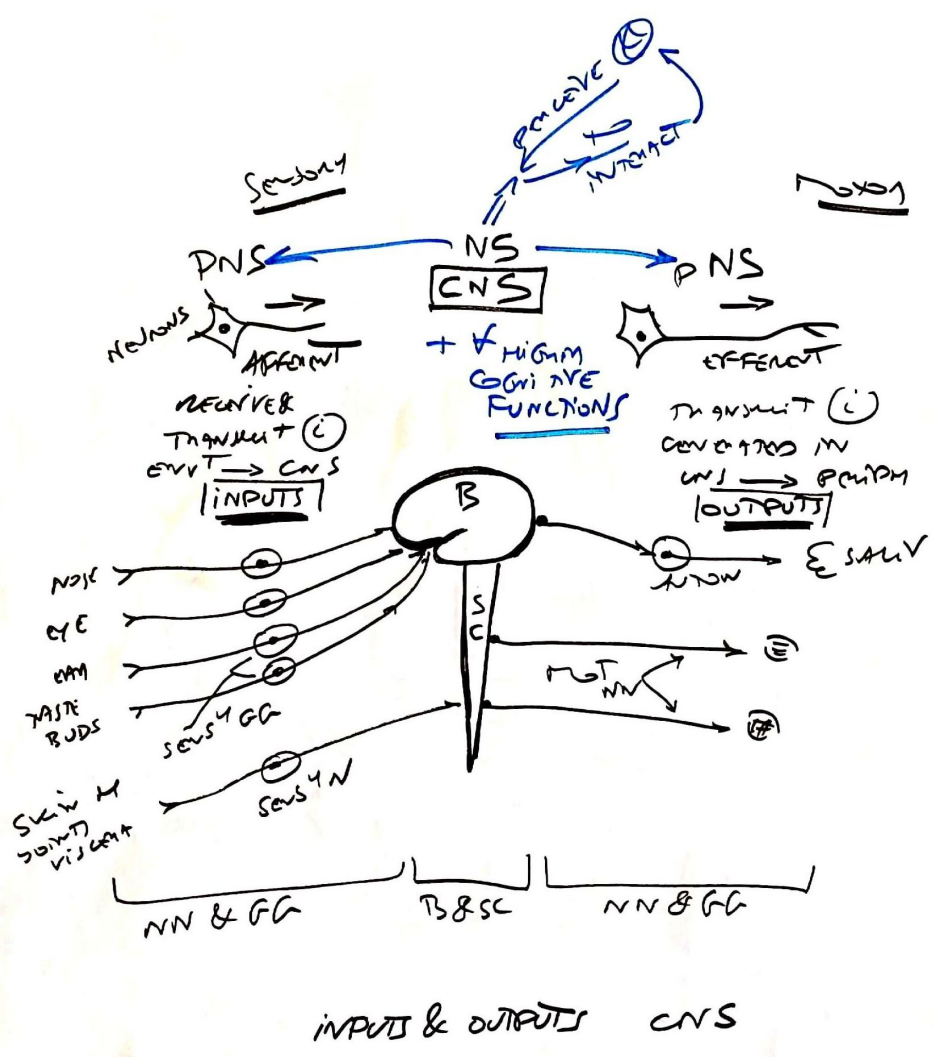 PERCEIVE
INTERACT
SENSORY
MOTOR
NS
PNS
CNS
PNS
NEURONS
AFFERENT
EFFERENT
+ ∀ HIGHER
COGNITIVE
FUNCTIONS
RECEIVE &
TRANSMIT (i)
ENVT → CNS
INPUTS
TRANSMIT (i)
GENERATED IN
CNS → PERIPH
OUTPUTS
B
NOSE
EYE
EAR
TASTE
BUDS
SENSY GG
SKIN M
JOINTS
VISCERA
SENSY N
SC
AUTON
SALIV
MOT NN
NN & GG
B & SC
NN & GG
INPUTS & OUTPUTS CNS